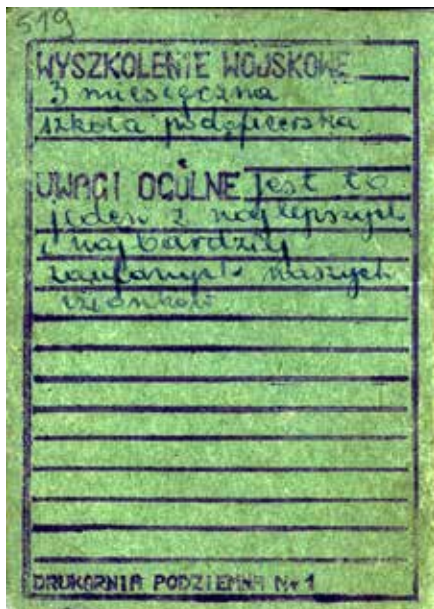 519
WYSZKOLENIE WOJSKOWE
3 miesięczna
szkoła podoficerska
UWAGI OGÓLNE Jest to
jeden z najlepszych
i najbardziej
zaufanych naszych
członków
DRUKARNIA PODZIEMNA Nr 1